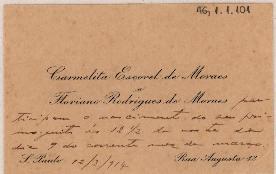 AG, 1.1.101
Carmelita Escorel de Moraes
e
Floriano Rodrigues de Moraes par-
ticipam o nascimento do seu pri-
mogenito ás 12 1/2 da noite do
dia 9 do corrente mez de março.
S. Paulo 12/3/914 Rua Augusta 42